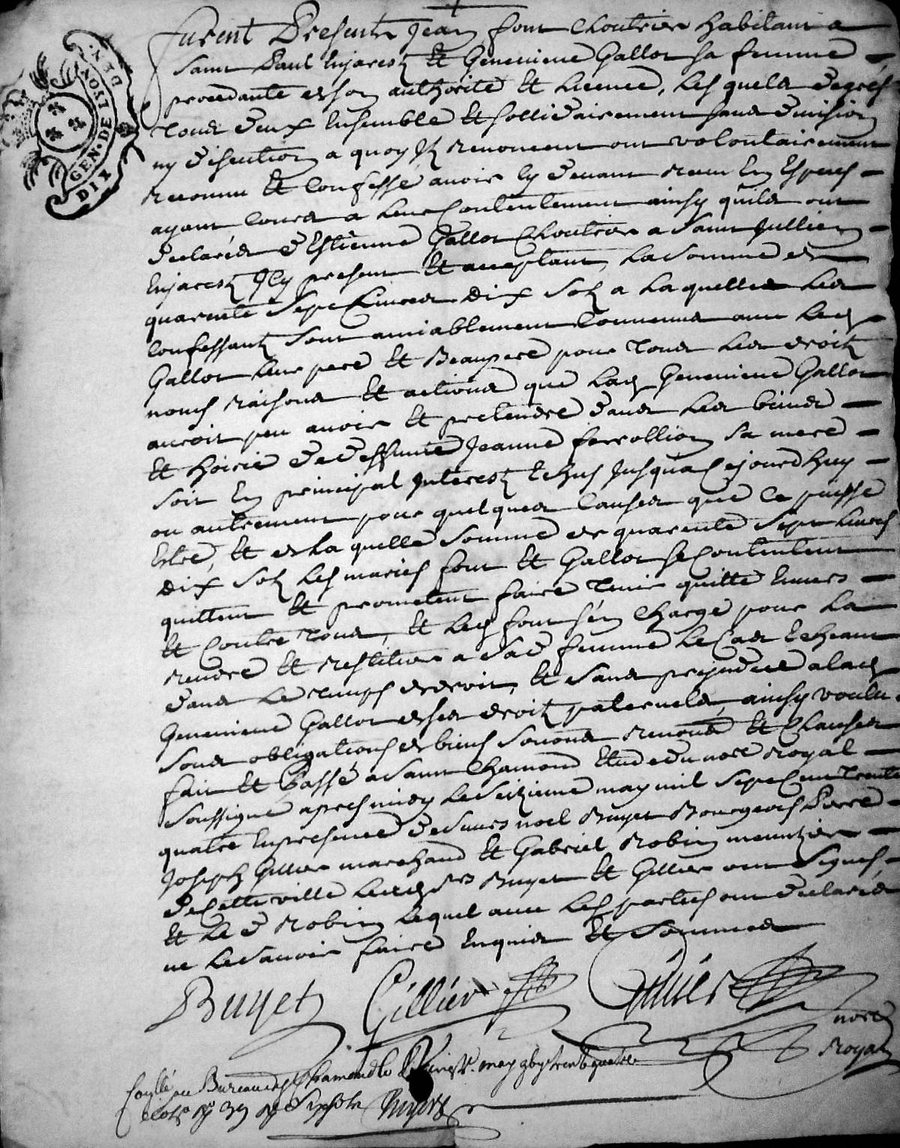 GEN. DE LYON
DIX DEN
furent Presents Jean font Cloutrier habitant a
Saint Paul Enjarest et Genevieve Gallot sa femme
procedante de son authorité et Licence, Lesquels de grés
Tous deux Ensemble et sollidairement sans division
ny discution a quoy ils renoncent ont volontairement
reconnu et Confessé avoir cy devant receu En Especes
ayant cours a Leur Contentement ainsy quils ont
declarés d'Estienne Gallot Cloutrier a Saint Jullien
Enjarest Icy present et acceptant, La somme de
quarente sept Livres dix sols a laquelle Les
Confessants sont amiablement Convenus avec Led
Gallot Leur pere et Beaupere pour Tous Les droits
noms raisons et actions que Lad Genevieve Gallot
auroit peu avoir et pretendre dans Les biens
et hoirie de deffunte Jeanne ferrollion sa mere
soit En principal Interests Echus Jusqua Cejourdhuy
ou autrement pour quelques Causes que Ce puisse
Estre, et de La quelle somme de quarente sept Livres
dix sols Les mariés font et Gallot se Contentent
quittent et promettent faire Tenir quitte Envers
et Contre Tous, et Led font s'en Charge pour La
rendre et restituer a sad femme Le Cas Echeant
dans Le Temps de droit, et sans prejudice a lad
Genevieve Gallot de ses droits paternels, ainsy voulu
sous obligations de biens soumis renond et Clauses
fait et Passé a Saint Chamond Etude du nore royal
soussigné apres midy Le seizieme may mil sept Cent Trente
quatre En presence de Sieurs noel Buyet Bourgeois Pierre
Joseph Gillier marchand et Gabriel Robin meunier
de Cette ville Lesd srs Buyet et Gillier ont signés
et Le d Robin Lequel avec Les parties ont declarés
ne Le savoir faire Enquis et Sommés
Buyet Gillier
nore
Royal
Conllé au Bureau de St Chamond le may